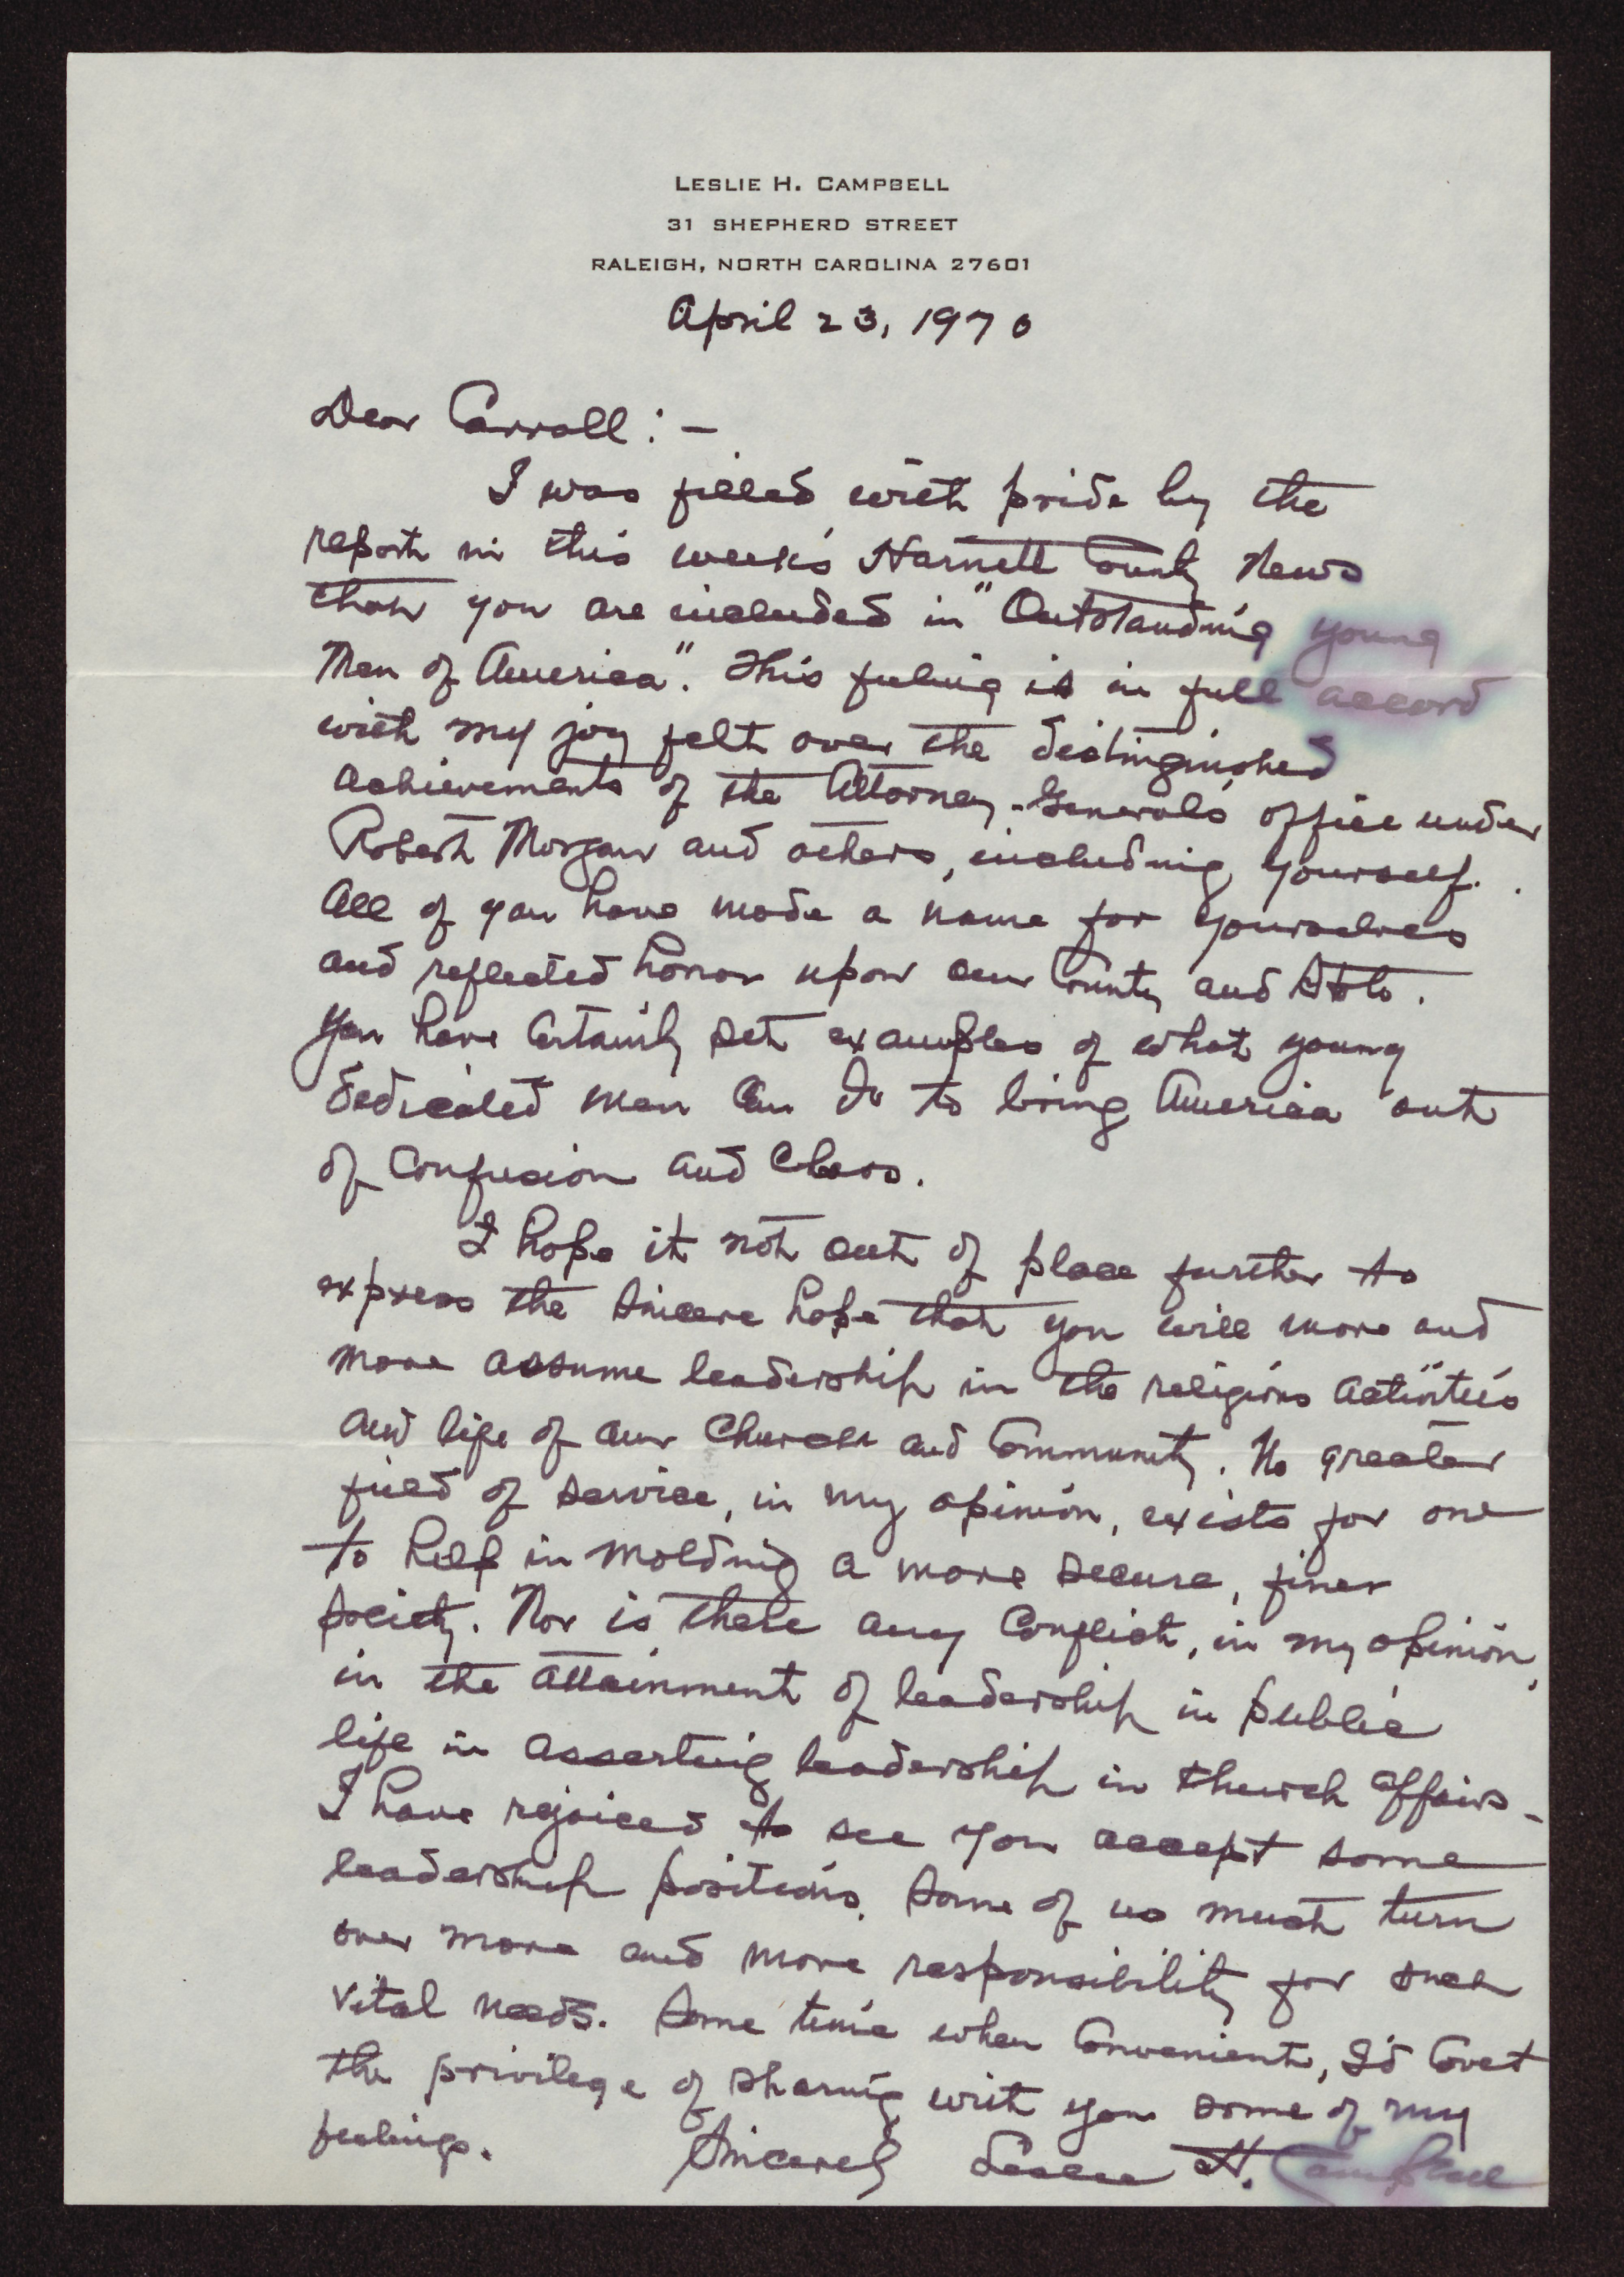 LESLIE H. CAMPBELL
31 SHEPHERD STREET
RALEIGH, NORTH CAROLINA 27601
April 23, 1970
Dear Carroll: —
I was filled with pride by the
report in this week's Harnett County News
that you are included in "Outstanding Young
Men of America". This feeling is in full accord
with my joy felt over the distinguished
achievements of the Attorney-General's office under
Robert Morgan and others, including yourself.
All of you have made a name for yourselves
and reflected honor upon our County and State.
You have certainly set examples of what young
dedicated men can do to bring America out
of confusion and chaos.
I hope it not out of place further to
express the sincere hope that you will more and
more assume leadership in the religious activities
and life of our Church and Community. No greater
field of service, in my opinion, exists for one
to help in molding a more secure, finer
society. Nor is there any conflict, in my opinion,
in the attainment of leadership in public
life in asserting leadership in church affairs -
I have rejoiced to see you accept some
leadership positions. Some of us must turn
over more and more responsibility for such
vital needs. Some time when convenient, I'd covet
the privilege of sharing with you some of my
feelings.
Sincerely Leslie H. Campbell